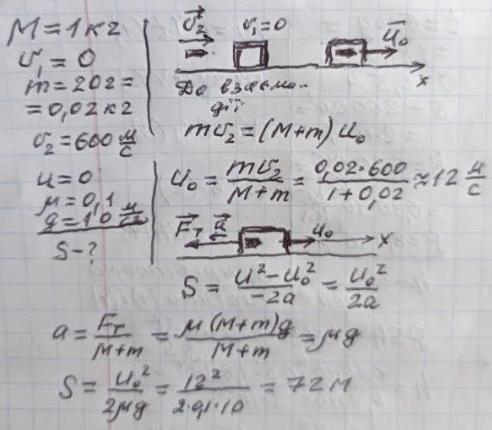 M = 1 кг
v₁ = 0
m = 20 г =
= 0,02 кг
v₂ = 600 м/с
u = 0
μ = 0,1
g = 10 м/с²
S - ?
v₂ v₁ = 0 u₀
x
До взаємо-
дії
mv₂ = (M+m) u₀
u₀ = mv₂/(M+m) = 0,02·600/(1+0,02) ≈ 12 м/с
Fт a u₀ x
S = (u² - u₀²)/(-2a) = u₀²/2a
a = Fт/(M+m) = μ(M+m)g/(M+m) = μg
S = u₀²/2μg = 12²/(2·0,1·10) = 72 м